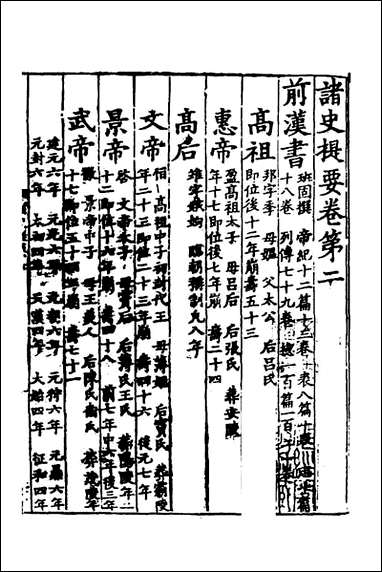 諸史提要卷第二
前漢書 班固撰 帝紀十二篇十三卷 表八篇十卷 志十篇
十八卷 列傳七十篇七十九卷 總一百篇一百二十卷
高祖 邦字季 母媼 父太公 后呂氏
即位後十二年崩 壽五十三
惠帝 盈高祖太子 母呂后 后張氏 葬安陵
年十七即位後七年崩 壽二十四
高后 雉字娥姁 臨朝稱制凡八年
文帝 恒 高祖中子初封代王 母薄姬 后竇氏 葬霸陵
年二十三即位二十三年崩 壽四十六 後元七年
景帝 啓 文帝太子 母竇后 后薄氏王氏 葬陽陵年三
十二即位十六年崩 壽四十八 前七年中六年後三年
武帝 徹 景帝中子 母王美人 后陳氏衛氏 葬茂陵年
十七即位五十四年崩 壽七十一
建元六年 元光六年 元朔六年 元狩六年 元鼎六年
元封六年 太初四年 天漢四年 太始四年 征和四年